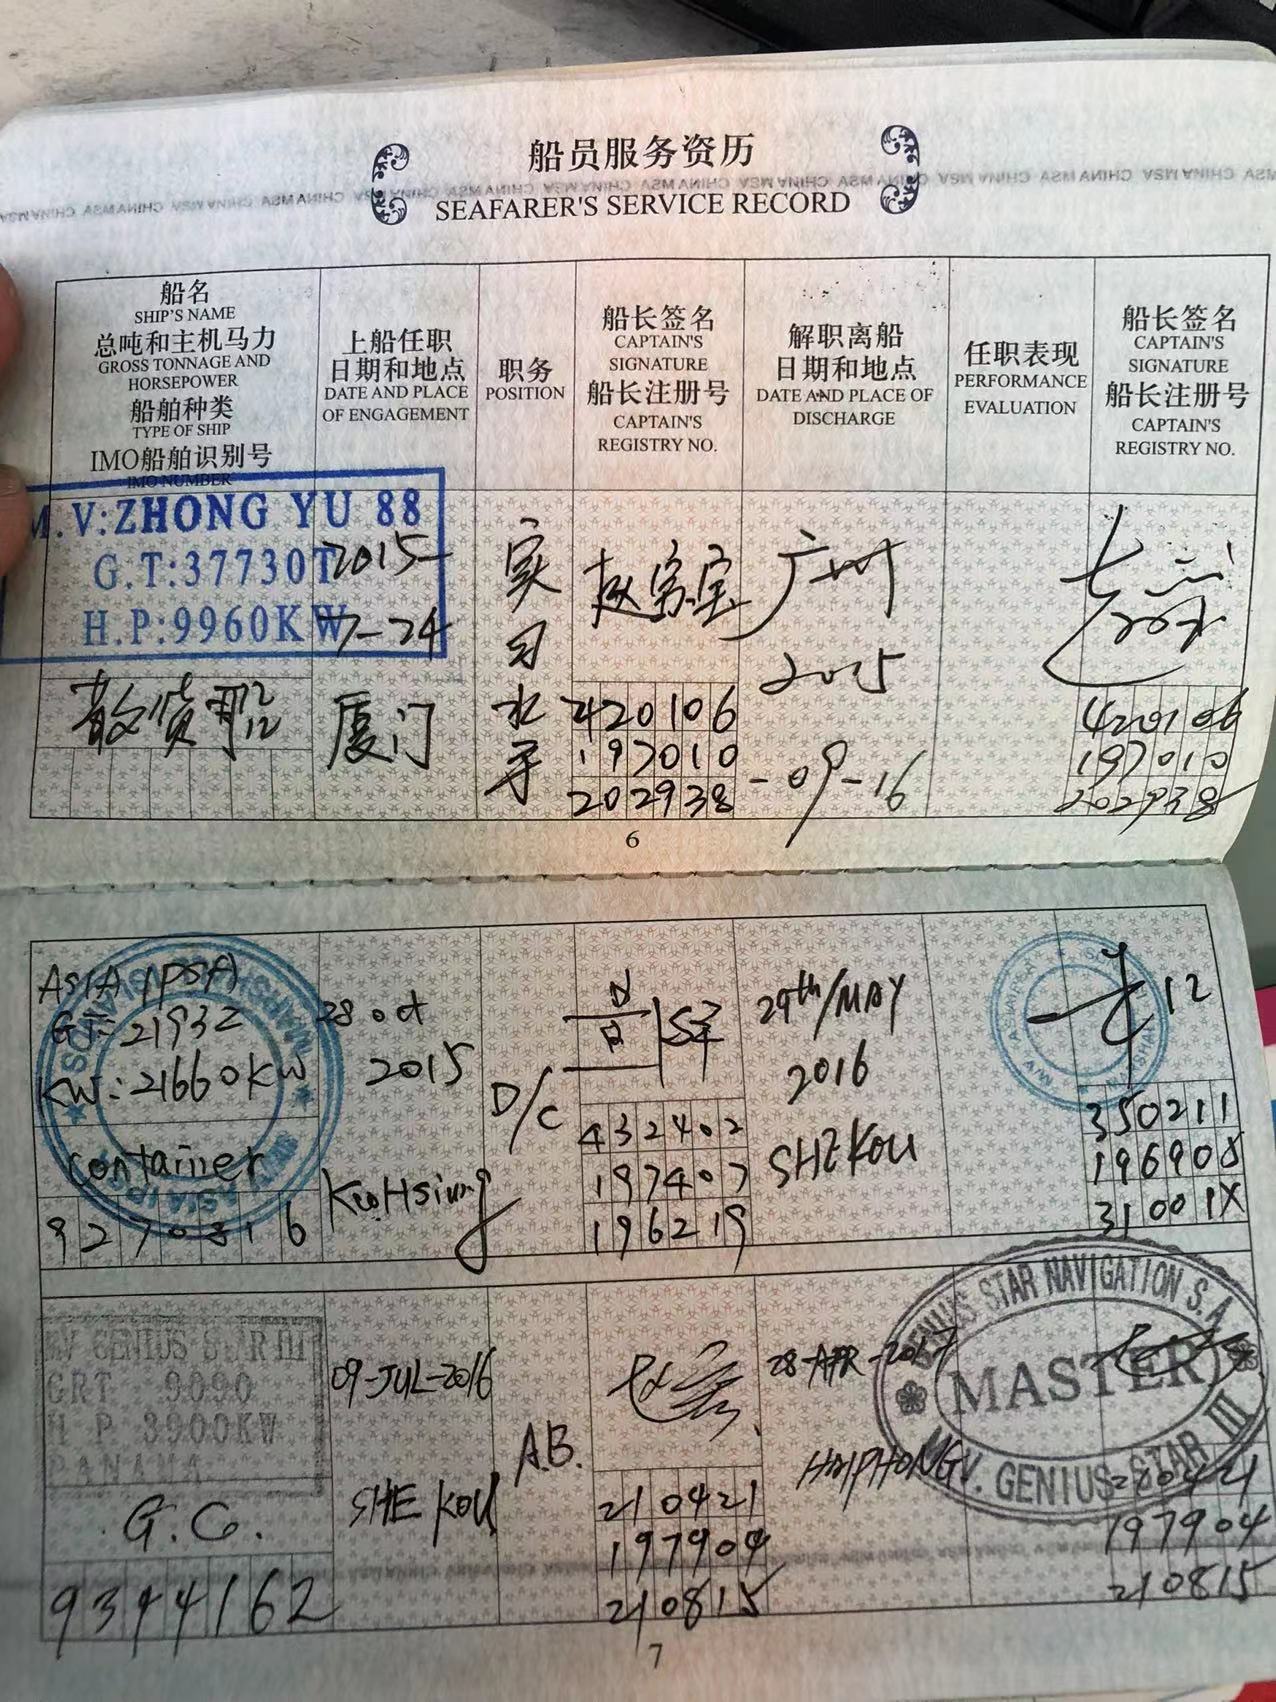 船员服务资历
SEAFARER'S SERVICE RECORD
船名
SHIP'S NAME
总吨和主机马力
GROSS TONNAGE AND
HORSEPOWER
船舶种类
TYPE OF SHIP
IMO船舶识别号
IMO NUMBER
上船任职
日期和地点
DATE AND PLACE
OF ENGAGEMENT
职务
POSITION
船长签名
CAPTAIN'S
SIGNATURE
船长注册号
CAPTAIN'S
REGISTRY NO.
解职离船
日期和地点
DATE AND PLACE OF
DISCHARGE
任职表现
PERFORMANCE
EVALUATION
船长签名
CAPTAIN'S
SIGNATURE
船长注册号
CAPTAIN'S
REGISTRY NO.
M.V:ZHONG YU 88
G.T:37730T
H.P:9960KW
散货船
2015-
7-24
厦门
实
习
水
手
420106
197010
202938
广州
2015
-09-16
420106
197010
202938
6
ASIA IPSA
GT: 21932
KW: 21660KW
container
9270816
28 oct
2015
KaoHsiung
D/C
432402
197407
196219
29th/MAY
2016
SHEKOU
350211
196908
31001X
MV GENIUS STAR III
GRT 9090
H P 3900KW
PANAMA
G.C.
9344162
09-JUL-2016
SHE KOU
A.B.
210421
197904
210815
28-APR-2017
HAIPHONG
GENIUS STAR NAVIGATION S.A.
MASTER
M.V. GENIUS STAR III
210421
197904
210815
7